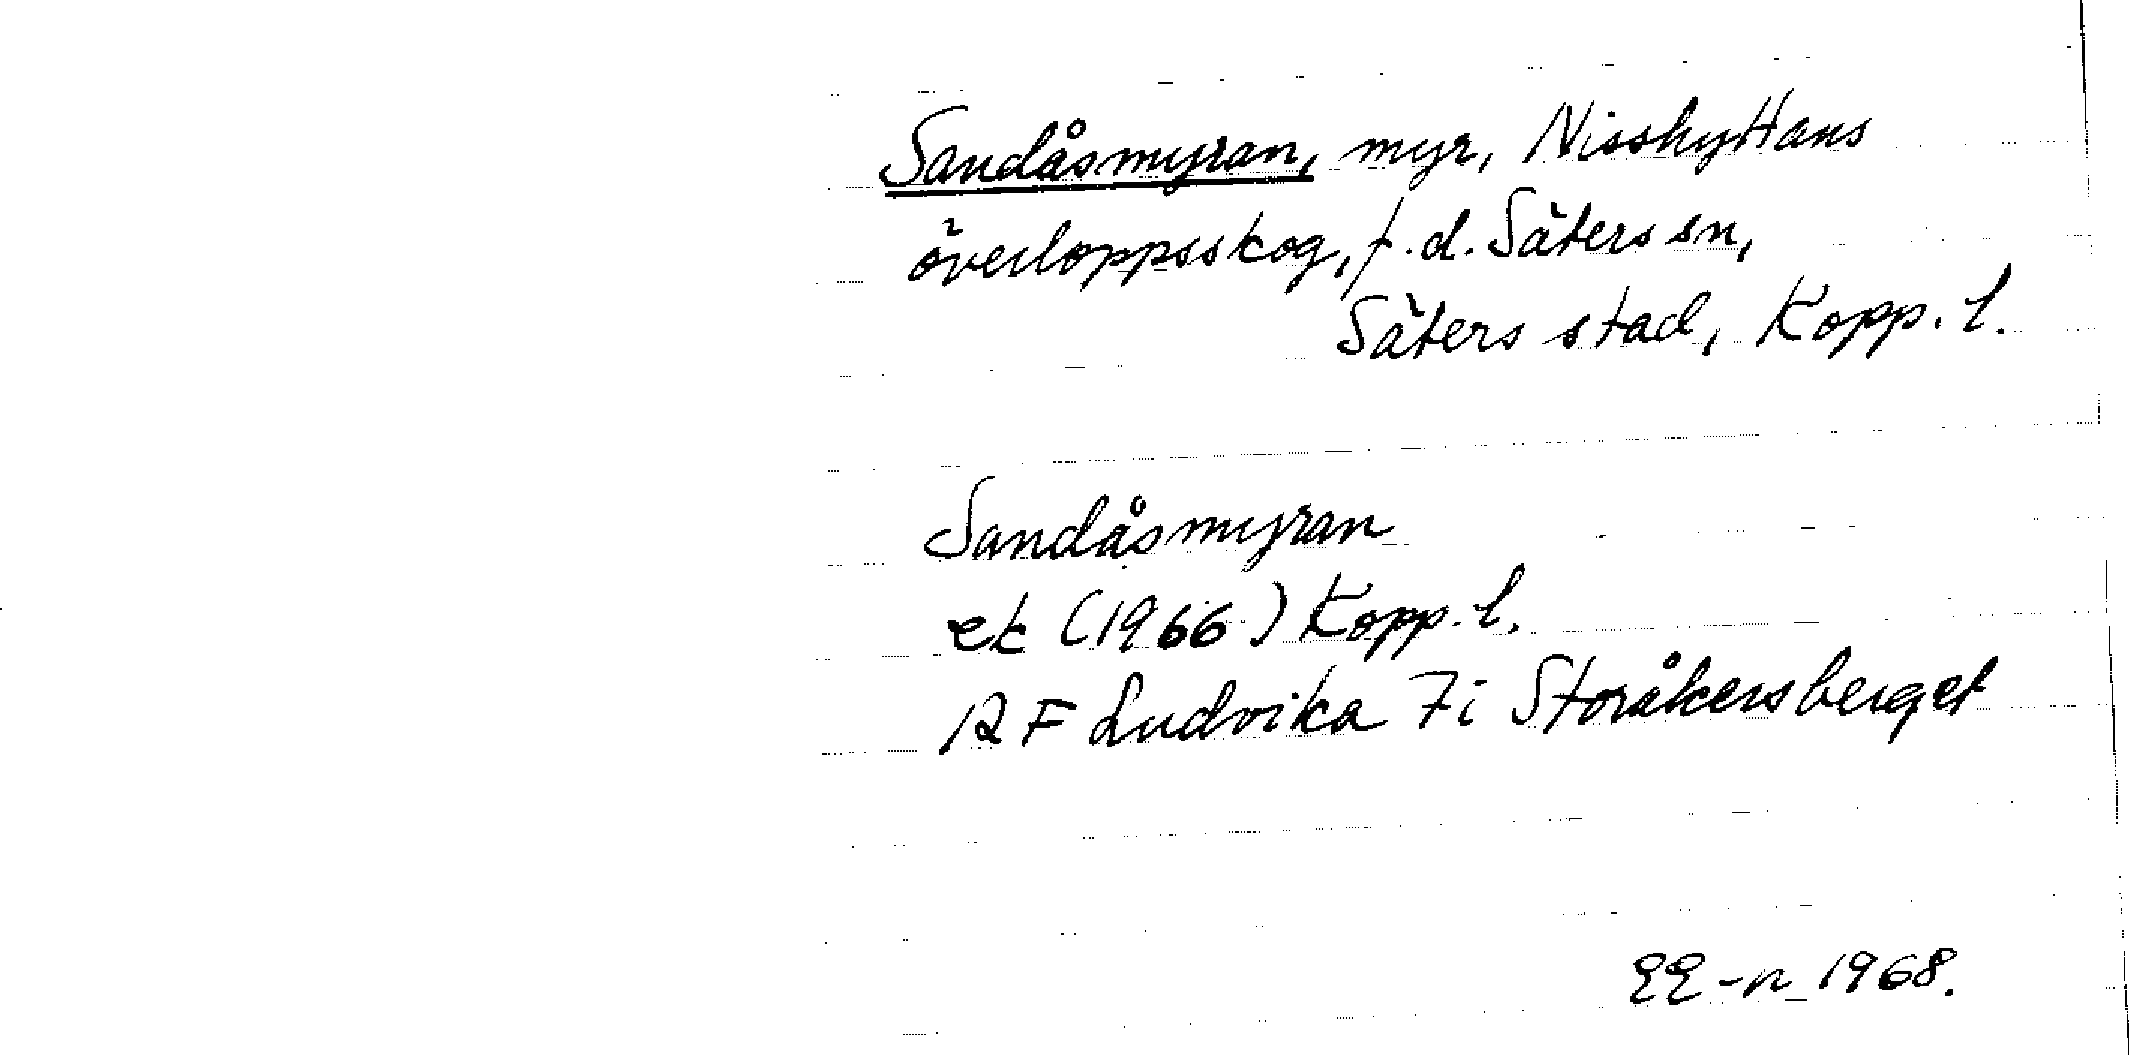 Sandåsmyran, myr, Nisshyttans
överloppsskog, f.d. Säters sn,
Säters stad, Kopp. l.
Sandåsmyran
ek (1966) Kopp. l.
12 F Ludvika 7i Storåkersberget
EE-n 1968.